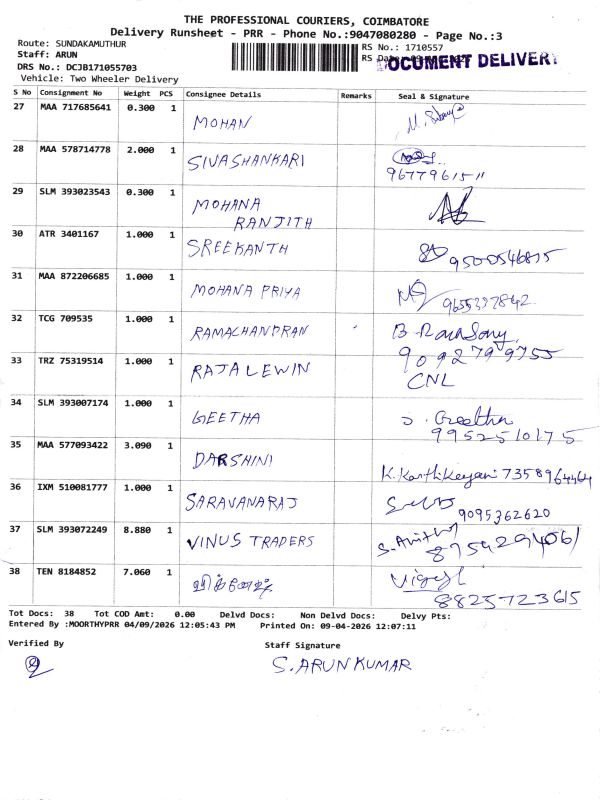 THE PROFESSIONAL COURIERS, COIMBATORE
Delivery Runsheet - PRR - Phone No.:9047080280 - Page No.:3
Route: SUNDAKAMUTHUR
RS No.: 1710557
Staff: ARUN
RS
DOCUMENT DELIVERY
DRS No.: DCJB171055703
Vehicle: Two Wheeler Delivery
S No Consignment No Weight PCS Consignee Details Remarks Seal & Signature
27 MAA 717685641 0.300 1 MOHAN
28 MAA 578714778 2.000 1 SIVASHANKARI
9677961511
29 SLM 393023543 0.300 1 MOHANA
RANJITH
30 ATR 3401167 1.000 1 SREEKANTH 9500546815
31 MAA 872206685 1.000 1 MOHANA PRIYA 9655397842
32 TCG 709535 1.000 1 RAMACHANDRAN
9092799755
33 TRZ 75319514 1.000 1 RAJALEWIN CNL
34 SLM 393007174 1.000 1 GEETHA S. Geetha
9952510175
35 MAA 577093422 3.090 1 DARSHINI K. Karthikeyan 7358964464
36 IXM 510081777 1.000 1 SARAVANARAJ 9095362620
37 SLM 393072249 8.880 1 VINUS TRADERS 8754294061
38 TEN 8184852 7.060 1
8825723615
Tot Docs: 38 Tot COD Amt: 0.00 Delvd Docs: Non Delvd Docs: Delvy Pts:
Entered By :MOORTHYPRR 04/09/2026 12:05:43 PM Printed On: 09-04-2026 12:07:11
Verified By Staff Signature
S. ARUN KUMAR